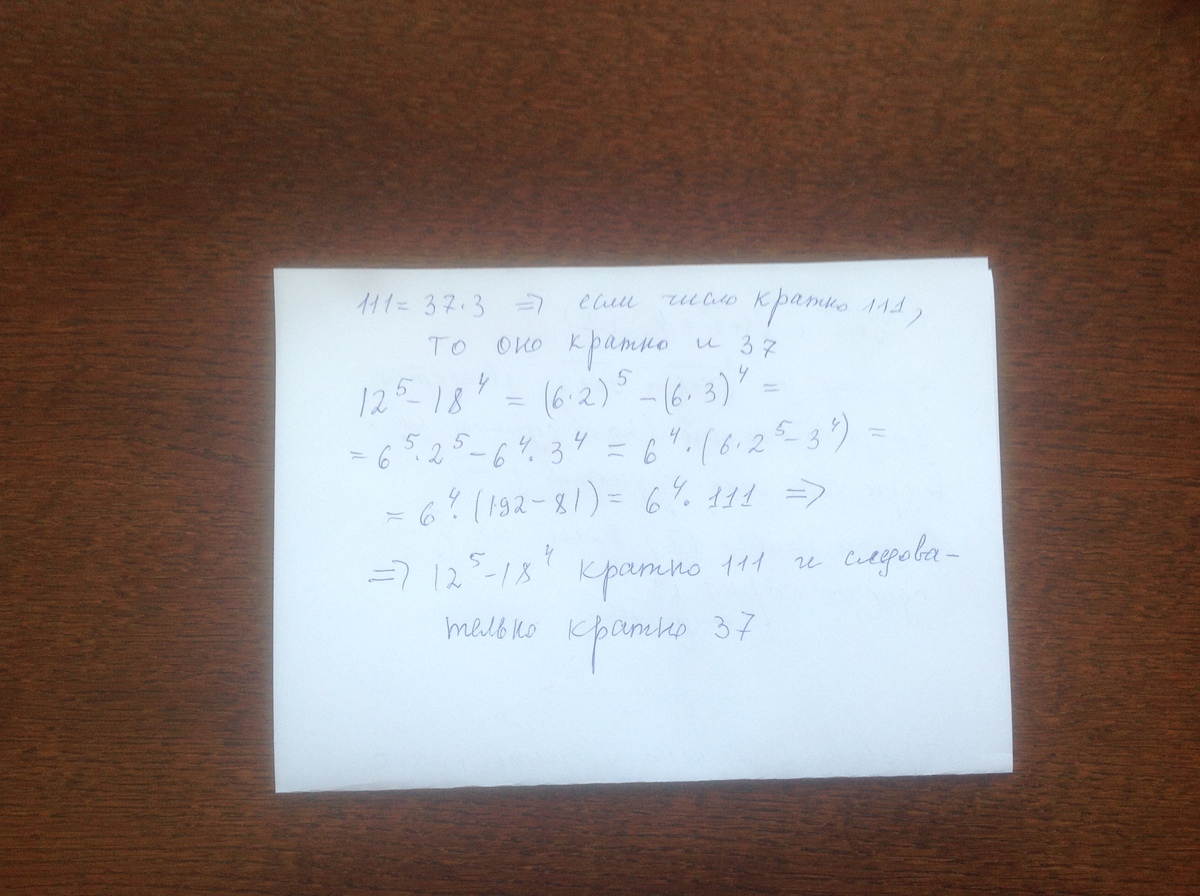 111 = 37·3 => если число кратно 111,
то оно кратно и 37
12⁵ - 18⁴ = (6·2)⁵ - (6·3)⁴ =
= 6⁵·2⁵ - 6⁴·3⁴ = 6⁴·(6·2⁵ - 3⁴) =
= 6⁴·(192 - 81) = 6⁴·111 =>
=> 12⁵ - 18⁴ кратно 111 и следова-
тельно кратно 37